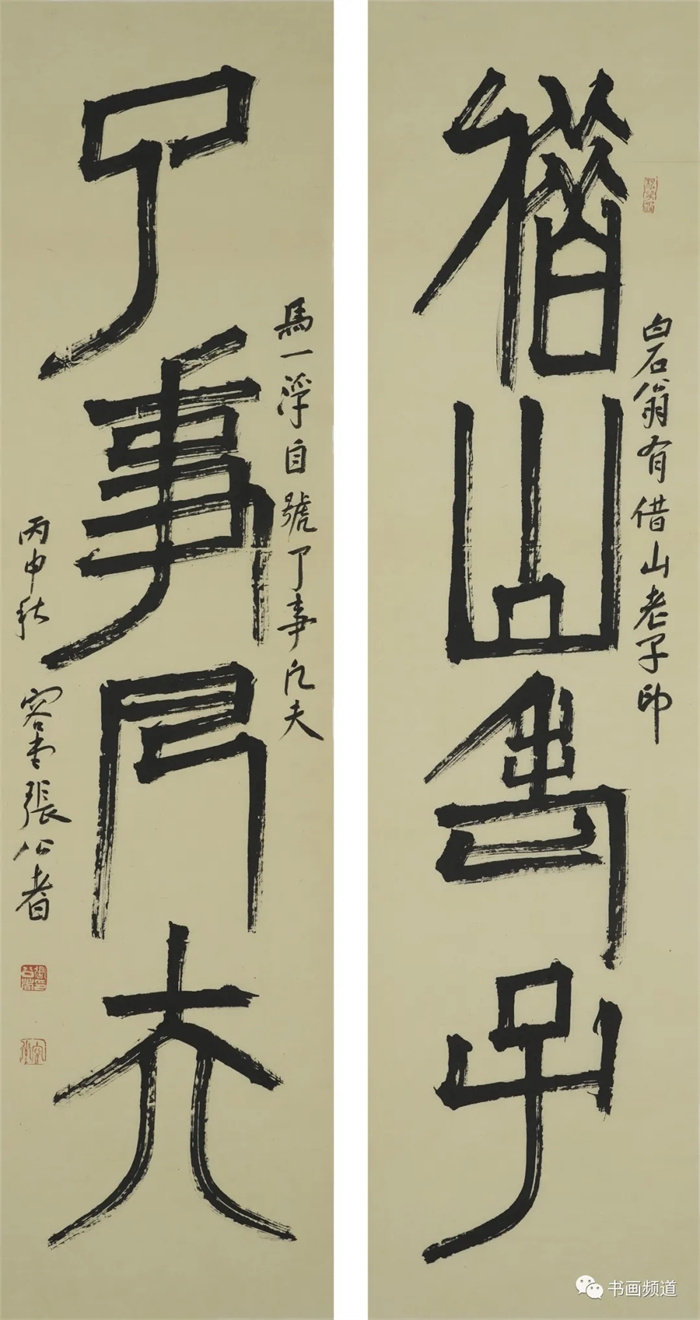 借山老子
白石翁有借山老子印
了事凡夫
馬一浮自號了事凡夫
丙申秋 容堂張公者
书画频道